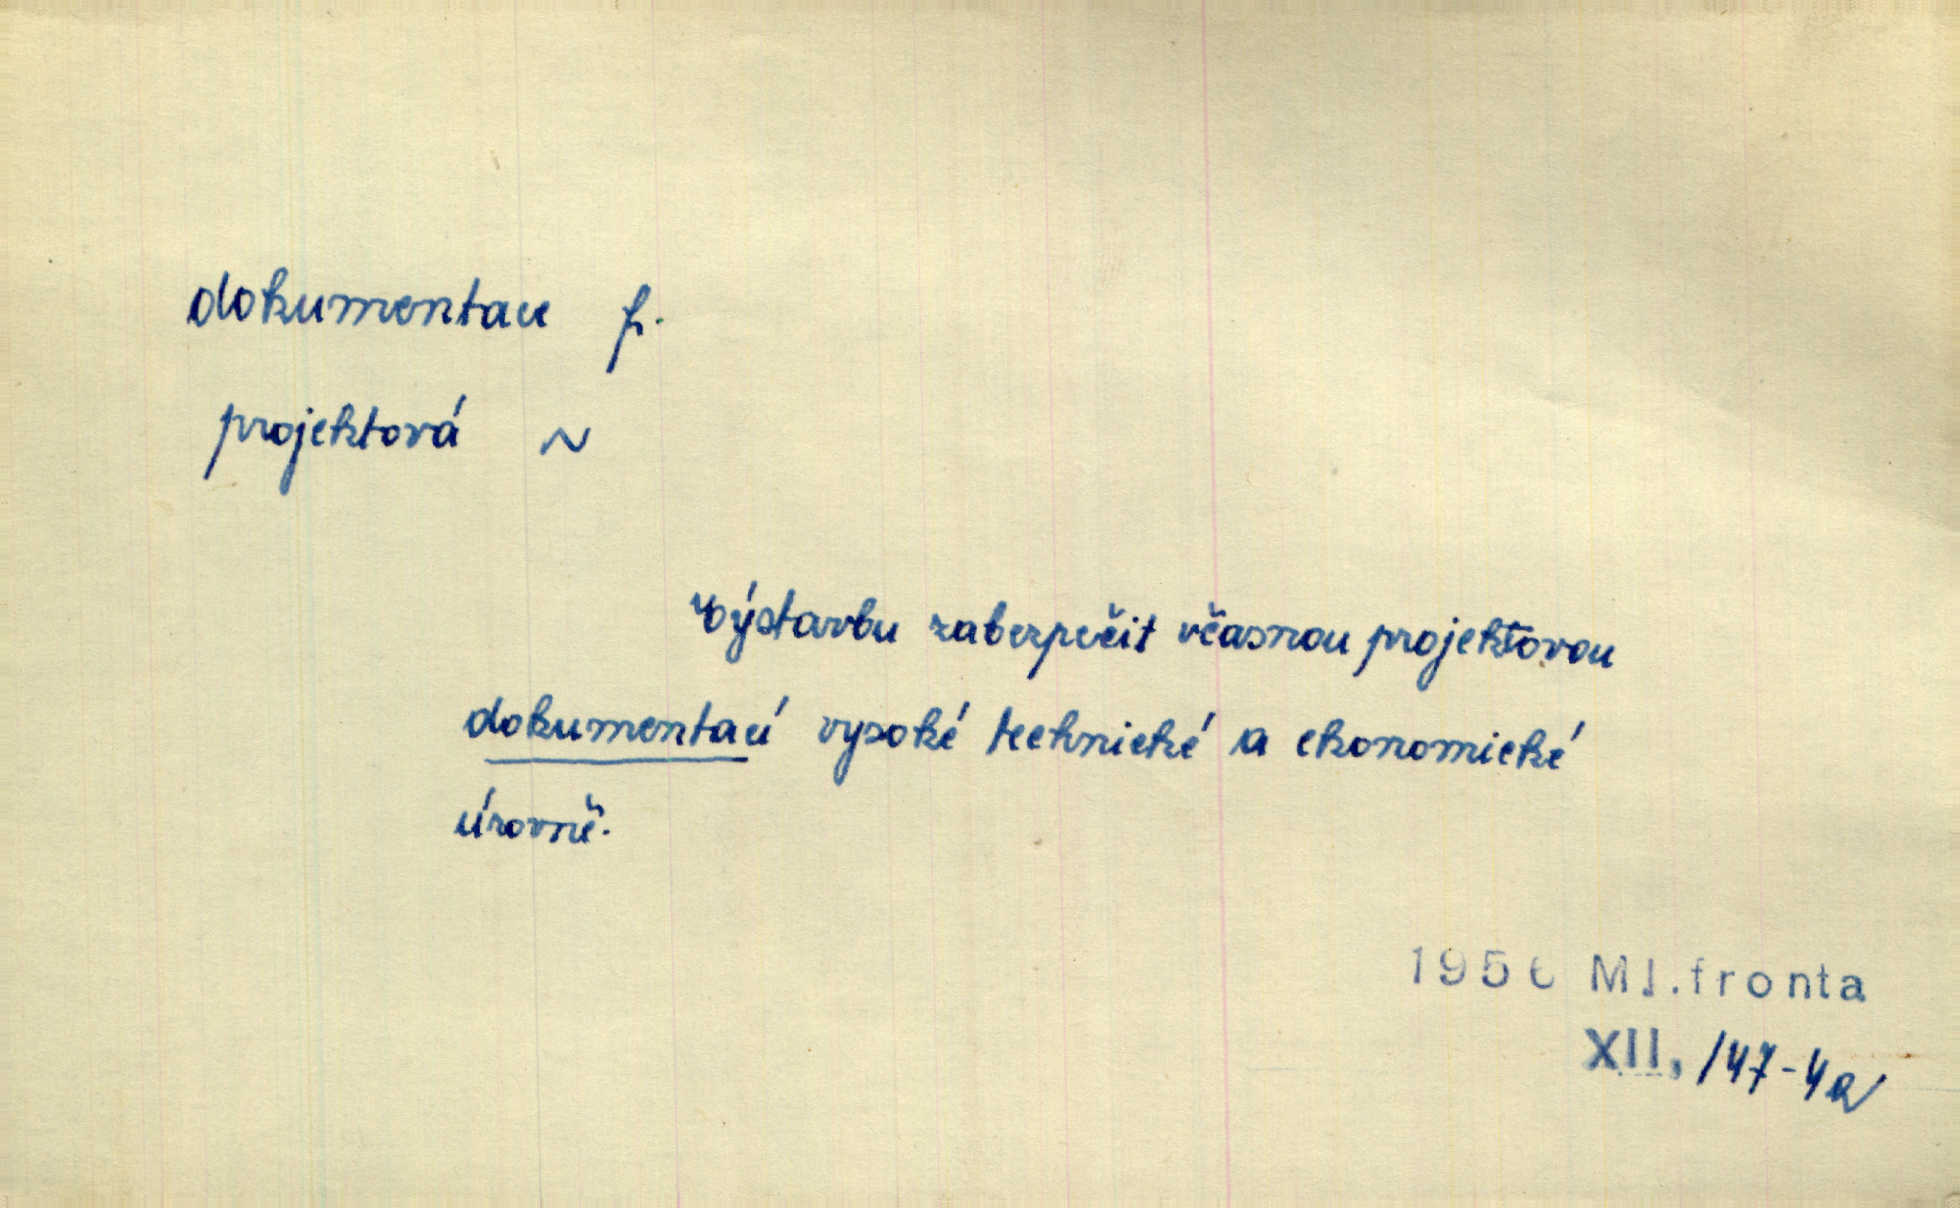 dokumentace f.
projektová ~
Výstavbu zabezpečit včasnou projektovou
dokumentací vysoké technické a ekonomické
úrovně.
1956 Ml.fronta
XII, 147-4a